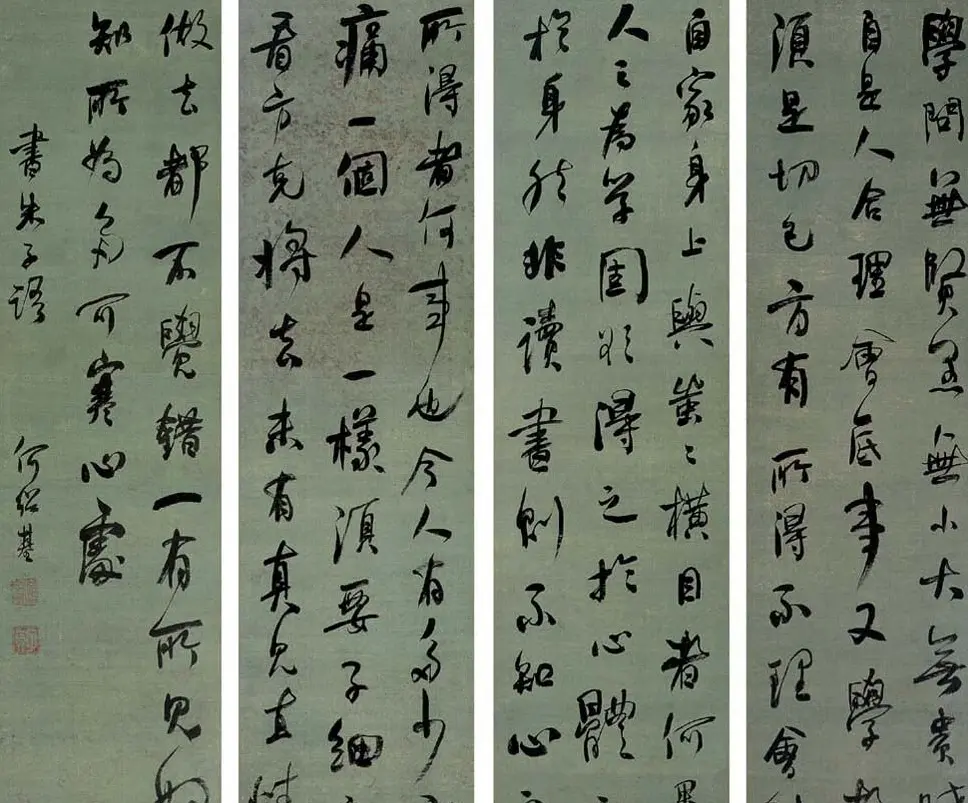 學問無賢愚無小大無貴賤
自是人合理會底事又學
須是切己方有所得不理會
自家身上與蚩〻橫目者何異
人之為學固欲得之於心體
於身然非讀書則不知心
所得者何事也今人有多少
痛一個人是一樣須要子細
看方克將去未有真見直情
做去都不覺錯一有所見始
知所為可寒心處
書朱子語 何紹基